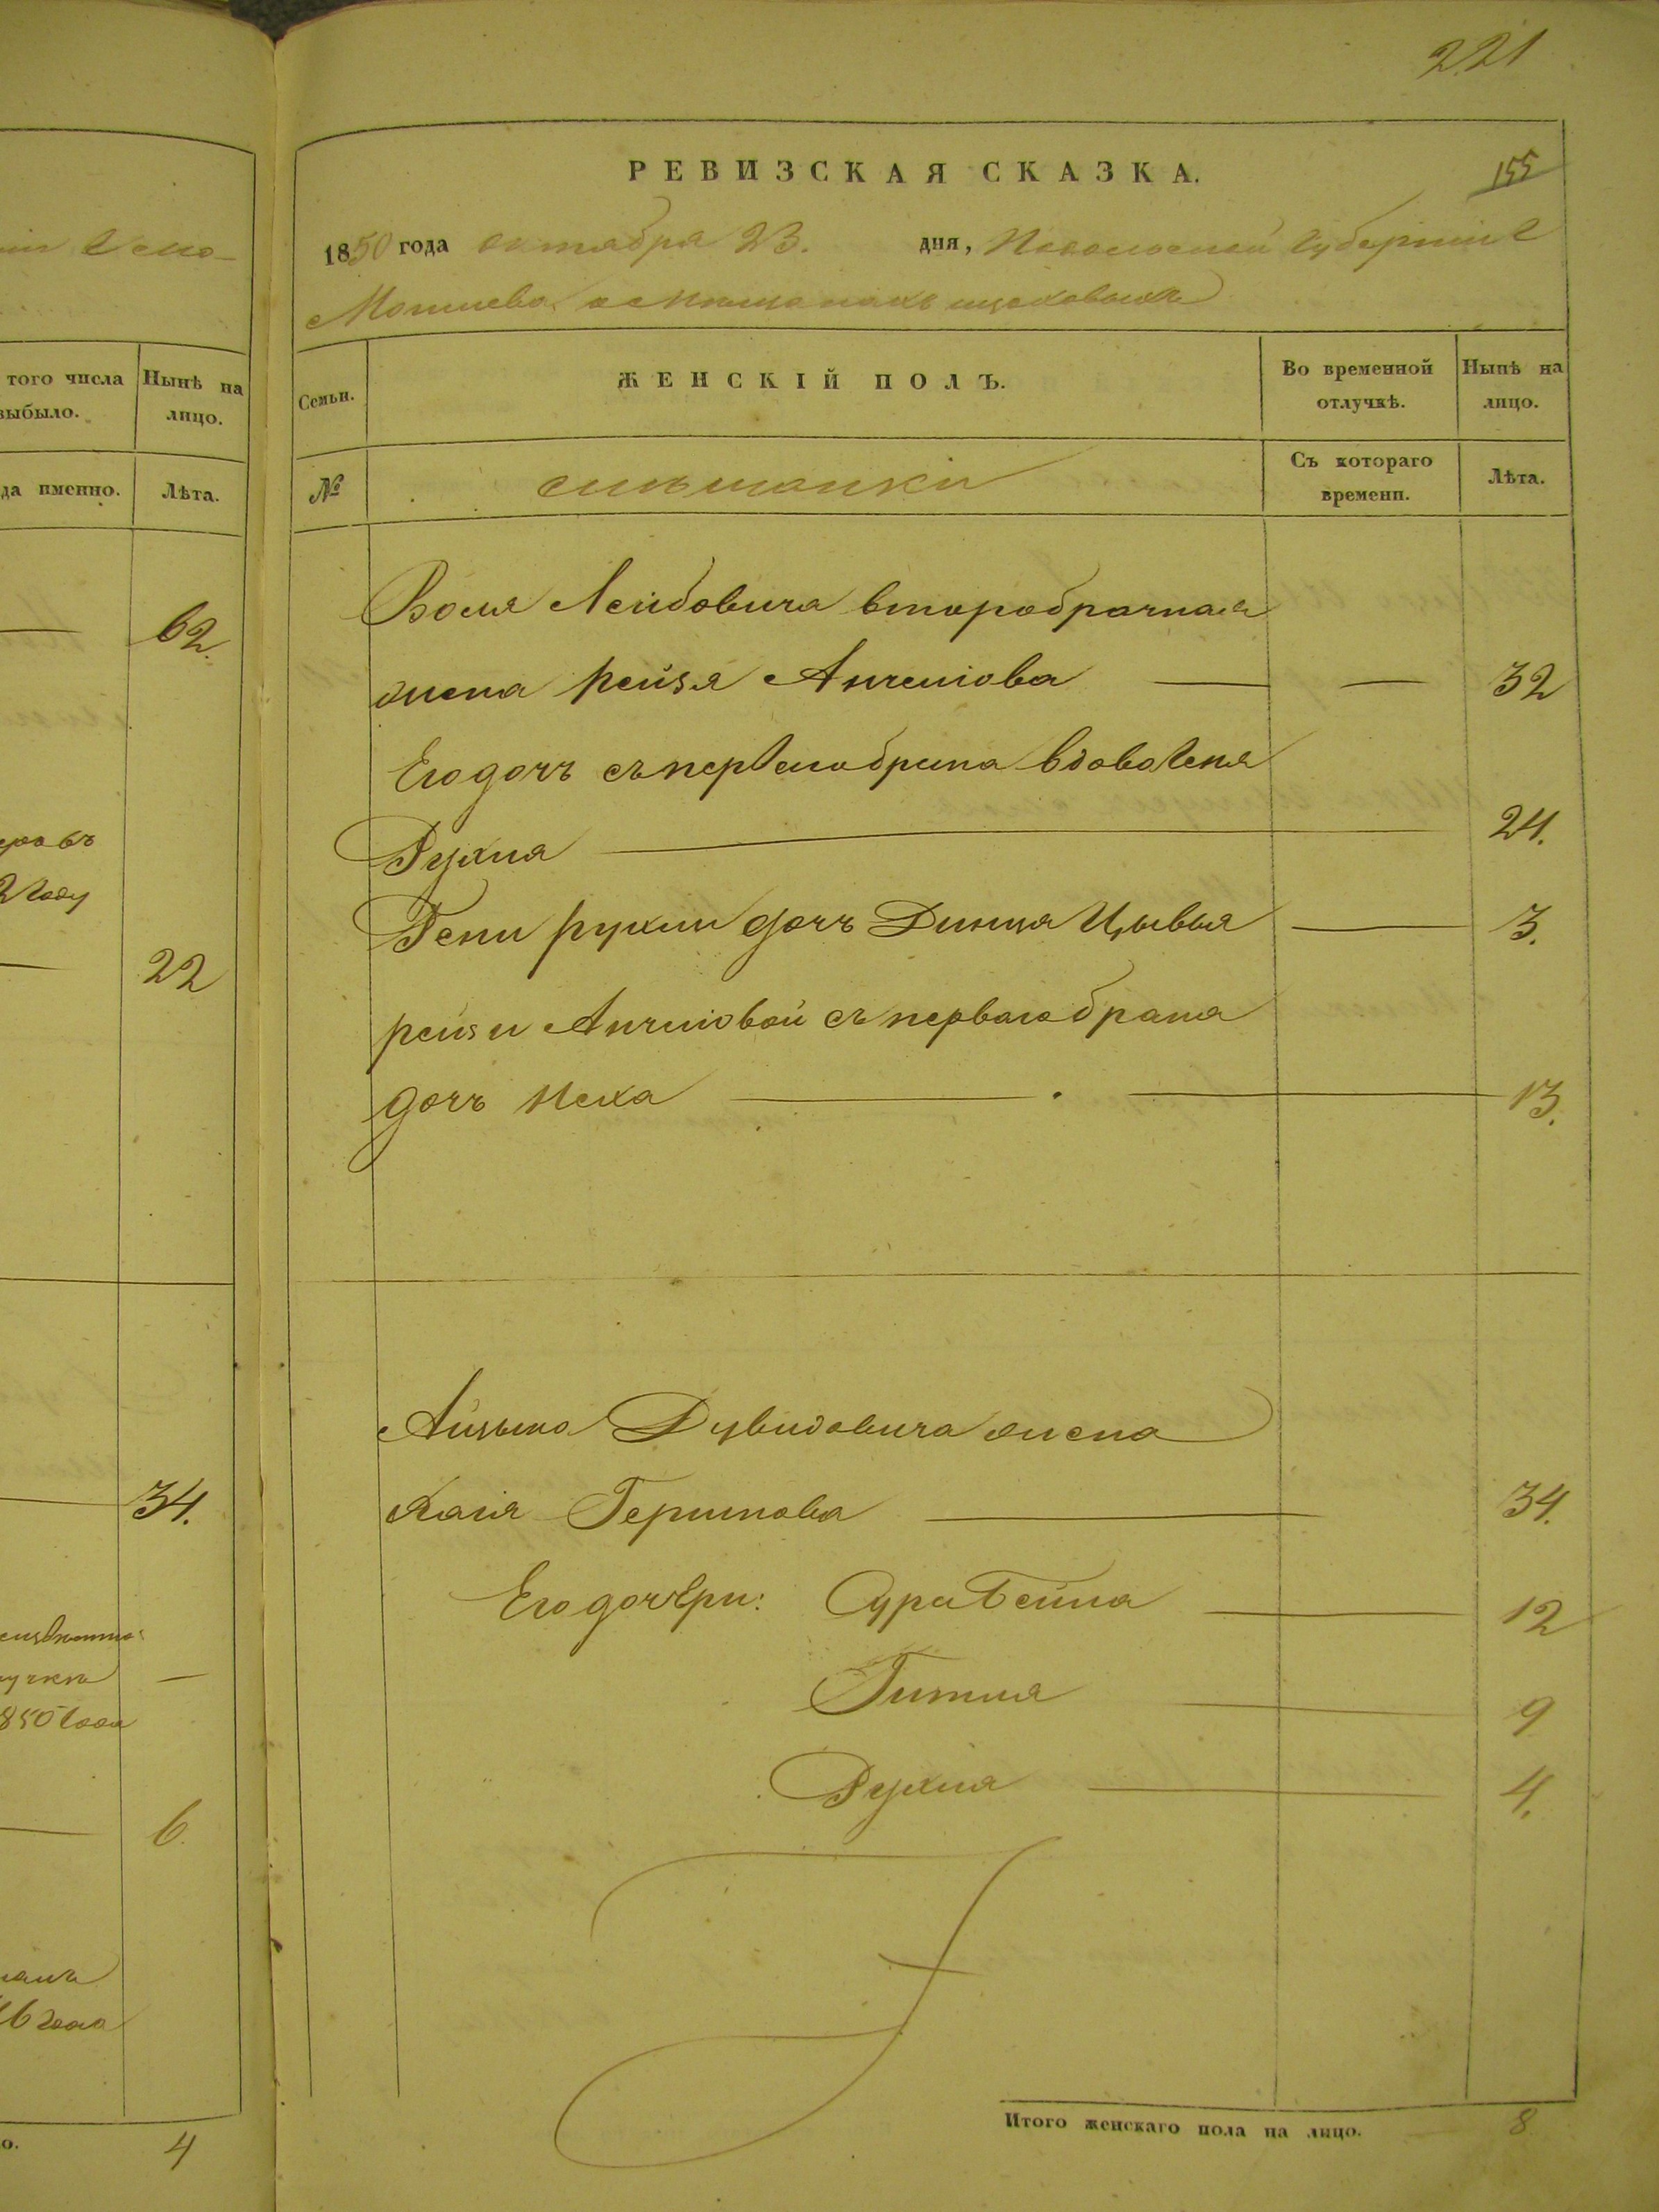 221
РЕВИЗСКАЯ СКАЗКА.
155
1850 года октября 23. дня, Подольской Губерніи
Могилева о мѣщанахъ цеховыхъ
того числа
выбыло.
Нынѣ на
лицо.
да именно.
Лѣта.
Семьи.
ЖЕНСКІЙ ПОЛЪ.
Во временной
отлучкѣ.
Нынѣ на
лицо.
№
Съ котораго
времени.
Лѣта.
62.
2 году
22
34.
850 года
6.
46 года
4
Лейбовича второбрачная
жена рейзя Анчелiова — — 32
Его дочь съ первагобрака вдова Геня
Рухля — 24.
Гени рухли дочь Динця Цывья — 3.
рейзи Анчлiовой съ перваго брака
дочь Песа — 13.
Айзыка Дувидовича жена
Хаія Гершкова — 34.
Его дочери: Сура Бейла — 12
Гитля — 9
Рухля — 4.
Итого женскаго пола на лицо. 8